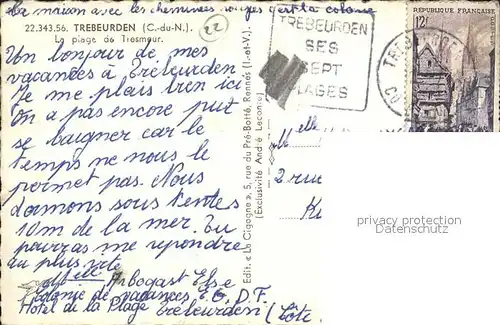 La maison avec les cheminées rouges c'est la colonie
22.343.56. TREBEURDEN (C.-du-N.).
La plage de Tresmeur.
22
Un bonjour de mes
vacances à Trébeurden.
Je me plais bien ici
On a pas encore put
se baigner car le
temps ne nous le
permet pas. Nous
dormons sous tentes
10m de la mer. Tu
pourras me repondre
au plus vite
Arbogast Else
Colonie de vacances E. G. D. F.
Hôtel de la Plage Trébeurden (Côte
Edit. « La Cigogne », 5, rue du Pré-Botté, Rennes (I.-et-V.).
(Exclusivité André Leconte)
TREBEURDEN
SES
SEPT
PLAGES
REPUBLIQUE FRANÇAISE
12F
Melle
2 rue
privacy protection
www.oldthing.com